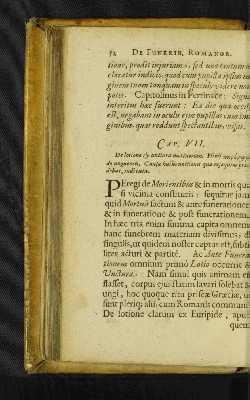 52 DE FUNERIB. ROMANOR.
tione, prodit injuriam: sed uno tantum
claratur indicio; quod cum pupilla ipsius
givem tuam tanquam in speculo videre
potes. Capitolinus in Pertinace: Signum
interitus hæc fuerunt: Ea die qua occisus
est, negabant in oculis ejus pupillas cum
ginibus, quas reddunt spectantibus, visas.
CAP. VII.
De lotione & unctura
de unguentis. Causa hujus unctionis
debat, indicata.
PEregi de Morientibus & in mortis qua
si vicinia constitutis: sequitur jam
quid Mortuo factum & ante funerationem
& in funeratione & post funerationem
In hæc tria enim summa capita omnem
hanc funebrem materiam divisimus;
singulis, ut quidem noster captus est, subti
liter acturi & partitè. Ac Ante Funera
tionem omnium primò Lotio occurrit &
Unctura. Nam simul quis animam ef
flasset, corpus ejus statim lavari solebat &
ungi, hoc quoque ritu priscæ Græciæ, ut
sunt pleriq; alii, cum Romanis communi
De lotione clarum ex Euripide, apud
quem